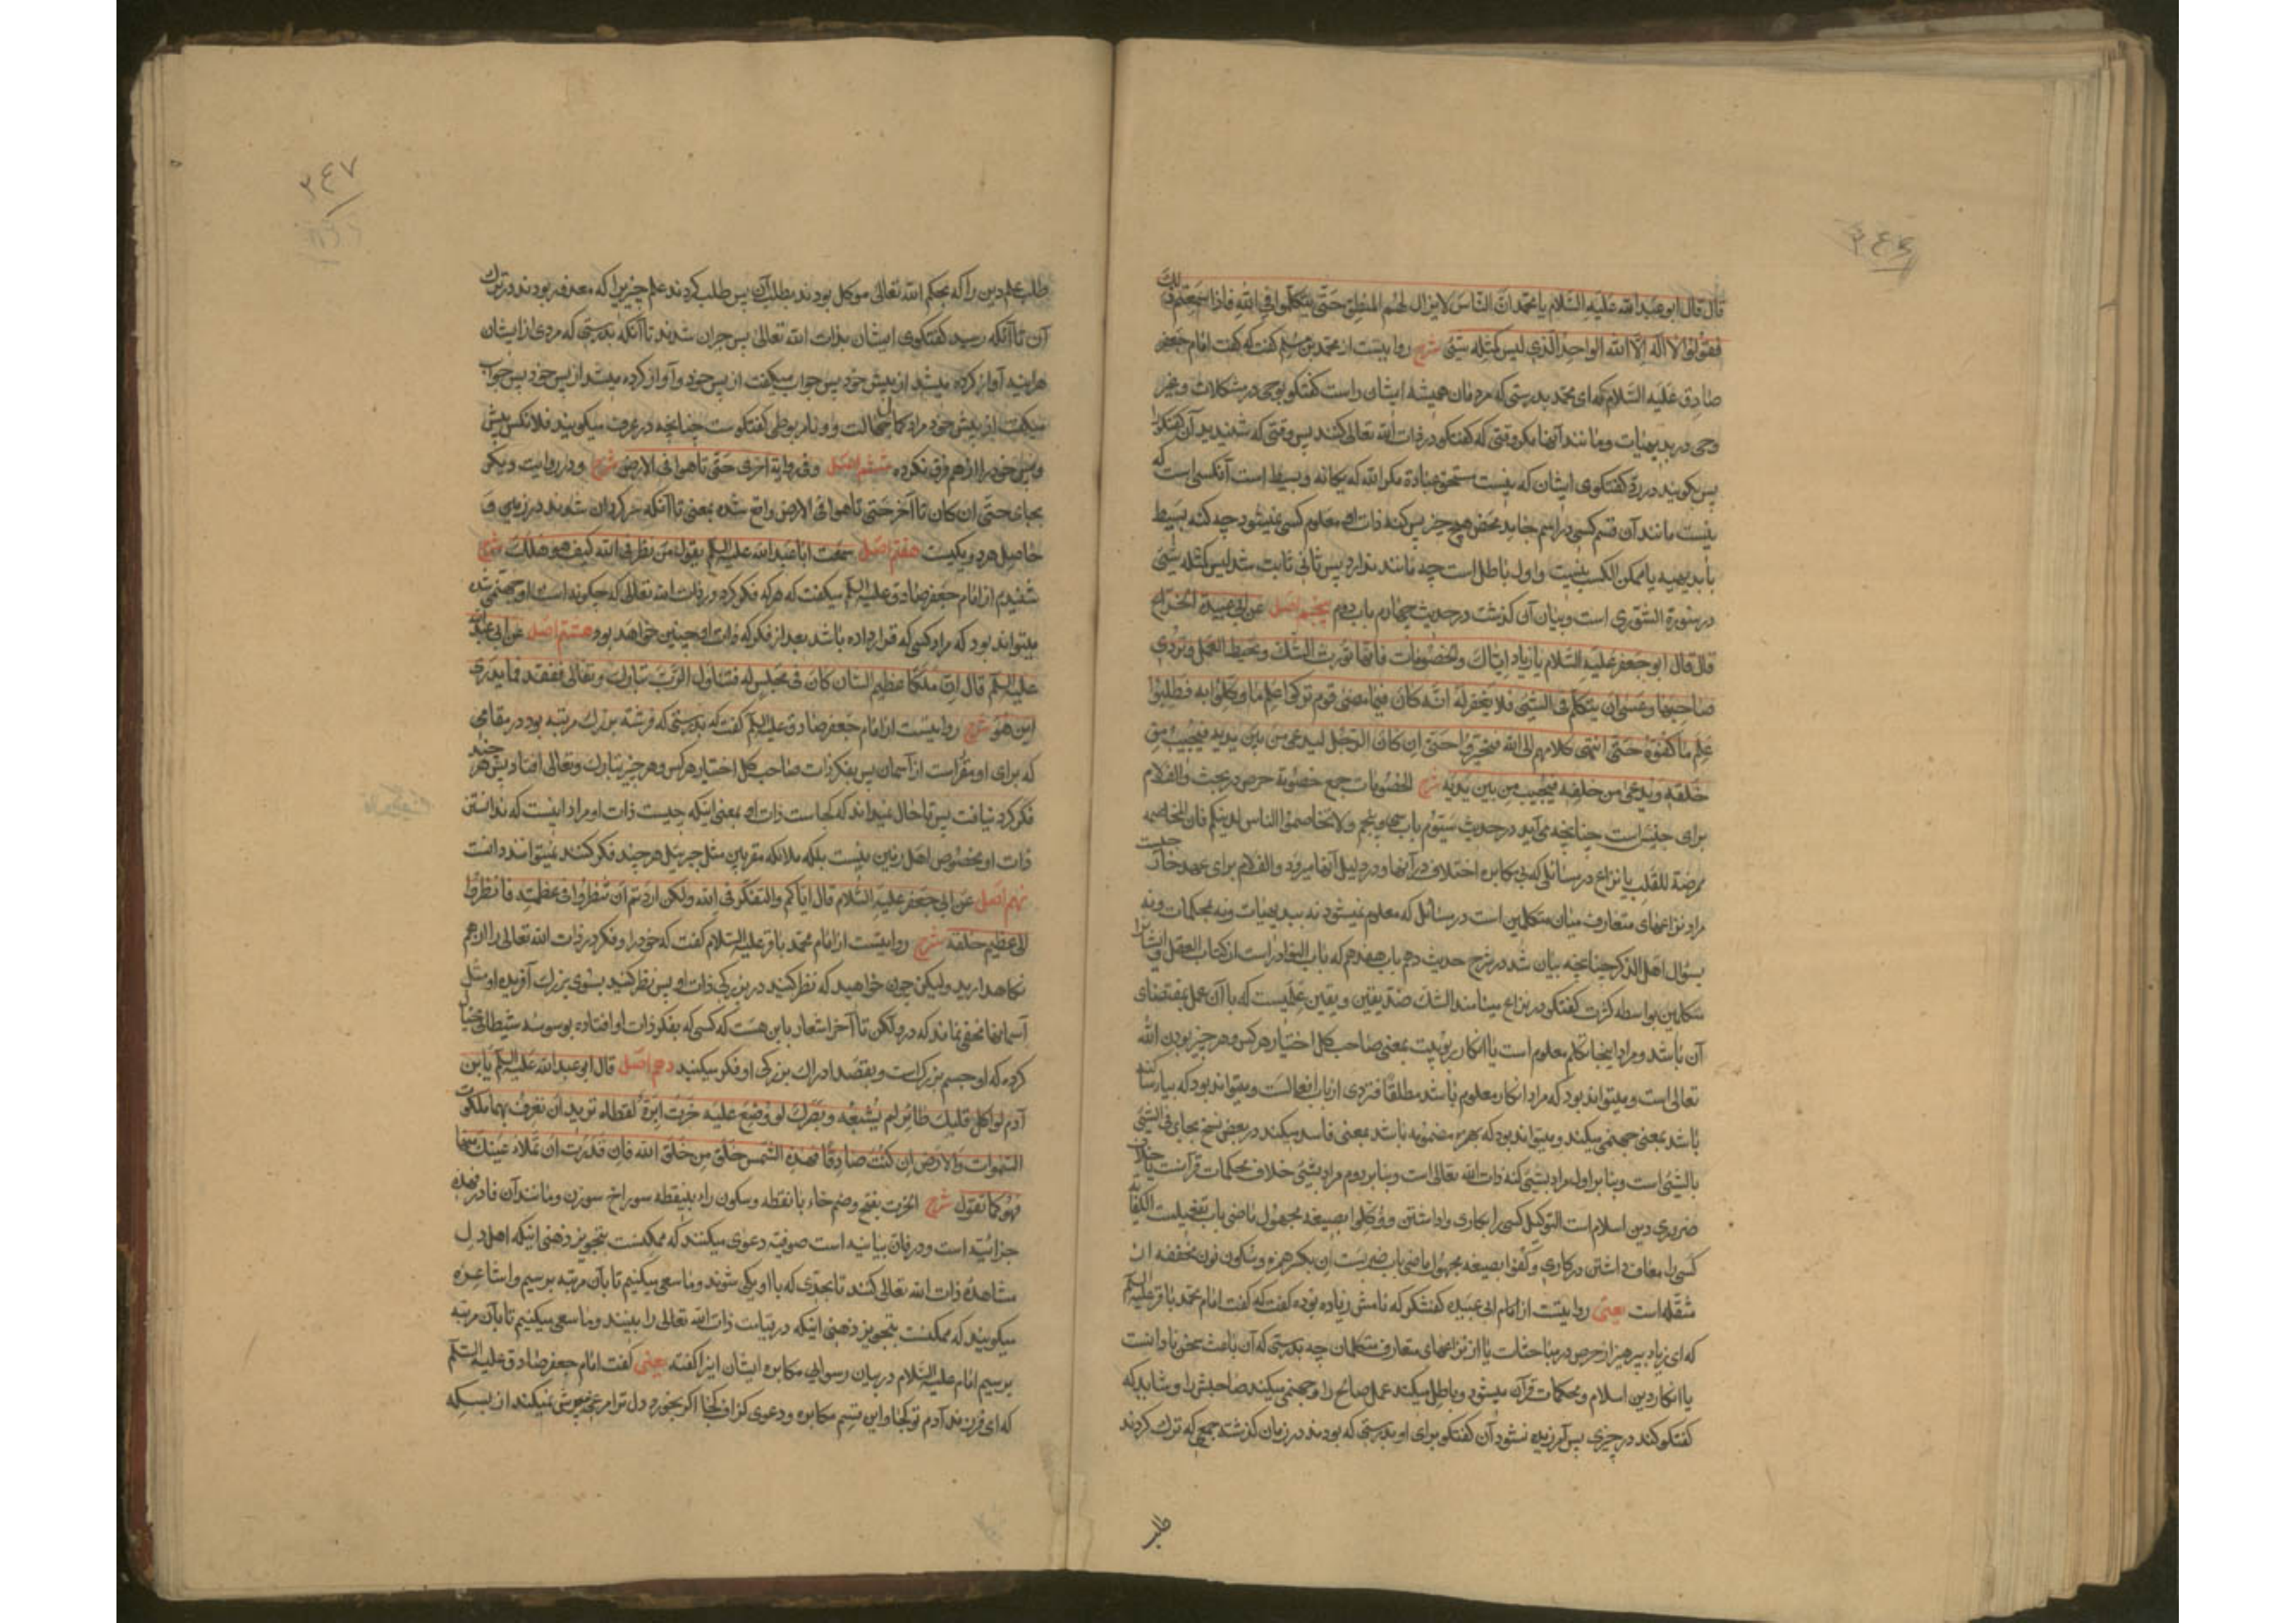 ٢٤٦
قال قال ابو عبد الله عليه السّلام يا محمّد انّ النّاس لا يزال لهم المنطق حتّى يتكلّموا في الله فاذا سمعتم ذلك
فقولوا لا اله الّا الله الواحد الّذي ليس كمثله شئ شرح روايتست از محمّد بن مسلم گفت كه گفت امام جعفر
صادق عليه السّلام كه اى محمّد بدرستى كه مردمان هميشه ايشان راست گفتگو بوحى در مشكلات و بغير
وحى در بديهيات و مانند آنها مگر وقتى كه گفتگو در ذات الله تعالى كنند پس وقتى كه شنيديد آن گفتگو را
پس بگوييد در ردّ گفتگوى ايشان كه نيست مستحق عبادة مگر الله كه يگانه و بسيط است آنكسى است كه
نيست مانند آن قسم كسى در اسم جامد محض هيچ چيز پس كنه ذات او معلوم كسى نميشود چه كنه بسيط
يا بديهيه يا ممكن الكسب نيست و اول باطل است چه مانند ندارد پس ثانى ثابت شد ليس كمثله شئ
در سورة الشّورى است و بيان آن گذشت در حديث چهارم باب دوم پنجم اصل عن ابى عبيدة الحذّاء
قال قال ابو جعفر عليه السّلام يا زياد ايّاك والخصومات فانّها تورث الشّك وتحبط العمل وتردي
صاحبها وعسى ان يتكلّم في الشّئ فلا يغفر له انّه كان فيما مضى قوم تركوا علم ما وكّلوا به فطلبوا
علم ما كفوه حتّى انتهى كلامهم الى الله فتحيّروا حتّى ان كان الرّجل ليدعى من بين يديه فيجيب من
خلفه ويدعى من خلفه فيجيب من بين يديه شرح الخصومات جمع خصومة حرص در بحث والف لام
براى جنس است چنانچه مى‌آيد در حديث سيّوم باب سى و پنجم ولا تخاصموا الناس لدينكم فان المخاصمه
ممرضة للقلب يا نزاع در مسائلى كه بى مكابره اختلاف در آنها و در دليل آنها ميرود والف لام براى عهد خارجيست
مراد نزاعهاى متعارف ميان متكلمين است در مسائل كه معلوم نميشود نه ببديهيات و نه بمحكمات و نه
بسؤال اهل الذكر چنانچه بيان شد در شرح حديث دهم باب هفدهم كه باب النوادر است از كتاب العقل و ايشانرا
متكلمين بواسطه كثرت گفتگو در نزاع مينامند الشك ضدّ يقين و يقين علميست كه با آن عمل بمقتضاى
آن باشد و مراد اينجا تكلّم معلوم است يا انكار ربوبيت بمعنى صاحب كل اختيار هر كس و هر چيز بودن الله
تعالى است و ميتواند بود كه مراد انكار معلوم باشد مطلقا فتردى از باب افعالست و ميتواند بود كه بيا رساكنه
باشد بمعنى جهنمى ميكند و ميتواند بود كه بهمزه مضمومه باشد بمعنى فاسد ميكند در بعض نسخ بجاى في الشئ
بالشئ است و بنا بر اول مراد بشئ كنه ذات الله تعالى است و بنا بر دوم مراد بشئ خلاف محكمات قرآنست يا خلاف
ضرورى دين اسلام است التوكيل كسى را بكارى واداشتن ووكّلوا بصيغه مجهول ماضى باب تفعيلست الكفاية
كسى را معاف داشتن در كارى وكفوا بصيغه مجهول ماضى باب ضربست ان بكسر همزه و سكون نون مخففه از
مثقّله است يعنى روايتست از امام ابى عبيده كفشگر كه نامش زياد بوده گفت كه گفت امام محمّد باقر عليه السلم
كه اى زياد بپرهيز از حرص در مباحثات يا از نزاعهاى متعارف متكلمان چه بدرستى كه آن باعث سخن نادانست
يا انكار دين اسلام و محكمات قرآن ميشود و باطل ميكند عمل صالح را و جهنمى ميكند صاحبش را و شايد كه
گفتگو كند در چيزى پس آمرزيده نشود آن گفتگو براى او بدرستى كه بودند در زمان گذشته جمعى كه ترك كردند
طلب
٢٤٧
طلب علم دين را كه بحكم الله تعالى موكل بودند بطلب آن پس طلب كردند علم چيزيرا كه معذور بودند در ترك
آن تا آنكه رسيد گفتگوى ايشان بذات الله تعالى پس حيران شدند تا آنكه بدرستى كه مردى از ايشان
هر آينه آواز كرده ميشد از پيش خود پس جواب ميگفت از پس خود و آواز كرده ميشد از پس خود پس جواب
ميگفت از پيش خود مراد كمال خجالت و نامربوطى گفتگوست چنانچه در عرف ميگويند فلانكس پيش
و پس خود را از هم فرق نكرده ششم اصل وفي رواية اخرى حتّى تاهوا في الارض شرح و در روايت ديگر
بجاى حتّى ان كان تا آخر حتّى تاهوا في الارض واقع شده بمعنى تا آنكه سرگردان شدند در زمين و
حاصل هر دو يكيست هفتم اصل سمعت ابا عبد الله عليه السلم يقول من نظر في الله كيف هو هلك شرح
شنيدم از امام جعفر صادق عليه السلم ميگفت كه هر كه فكر كرد در ذات الله تعالى كه چگونه است او جهنمى شد
ميتواند بود كه مراد كسى كه قرار داده باشد بعد از فكر كه ذات او چنين خواهد بود هشتم اصل عن ابى عبد الله
عليه السلم قال انّ ملكا عظيم الشان كان في مجلس له فتناول الرّبّ تبارك وتعالى ففقد فما يدرى
اين هو شرح روايتست از امام جعفر صادق عليه السلم گفت كه بدرستى كه فرشته بزرگ مرتبه بود در مقامى
كه براى او مقرّر است از آسمان پس بفكر ذات صاحب كل اختيار هر كس و هر چيز تبارك وتعالى افتاد پس هر چند
فكر كرد نيافت پس تا حال نميداند كه كجاست ذات او بمعنى اينكه چيست ذات او مراد اينست كه ندانستن
ذات او مخصوص اهل زمين نيست بلكه ملائكه مقربين مثل جبرئيل هر چند فكر كنند نميتوانند دانست
نهم اصل عن ابى جعفر عليه السّلام قال ايّاكم والتفكّر في الله ولكن اذا اردتم ان تنظروا في عظمته فانظروا
الى عظيم خلقه شرح روايتست از امام محمّد باقر عليه السّلام گفت كه خود را و فكر در ذات الله تعالى را از هم
نگاهداريد وليكن چون خواهيد كه نظر كنيد در بزرگى ذات او پس نظر كنيد بسوى بزرگ آفريده او مثل
آسمانها مخفى نماند كه در ولكن تا آخر اشعار باين هست كه كسى كه بفكر ذات او افتاده بوسوسه شيطانى خيال
كرده كه او جسم بزرگ است و بقصد ادراك بزرگى او فكر ميكنيد دهم اصل قال ابو عبد الله عليه السلم يا بن
آدم لو اكل قلبك طائر لم يشبعه وبصرك لو وضع عليه خرت ابرة لغطّاه تريد ان تعرف بهما ملكوت
السّموات والارض ان كنت صادقا فهذه الشّمس خلق من خلق الله فان قدرت ان تملاء عينك منها
فهو كما تقول شرح الخرت بفتح و ضم خاء با نقطه و سكون راء بينقطه سوراخ سوزن و مانند آن فا در فهذه
جزائيّه است و در فان بيانيه است صوفيّه دعوى ميكنند كه ممكنست بتجويز ذهنى اينكه اهل دل
مشاهده ذات الله تعالى كنند تا بحدّى كه با او يكى شوند و ما سعى ميكنيم تا بآن مرتبه برسيم و اشاعره
ميگويند كه ممكنست بتجويز ذهنى اينكه در قيامت ذات الله تعالى را ببينند و ما سعى ميكنيم تا بآن مرتبه
برسيم امام عليه السّلام در بيان رسوايى مكابره ايشان اينرا گفته يعنى گفت امام جعفر صادق عليه السّلم
كه اى فرزند آدم تو كجا و اين قسم مكابره و دعوى گزاف كجا اگر بخورد دل ترا مرغى سيرش نميكند از بسكه